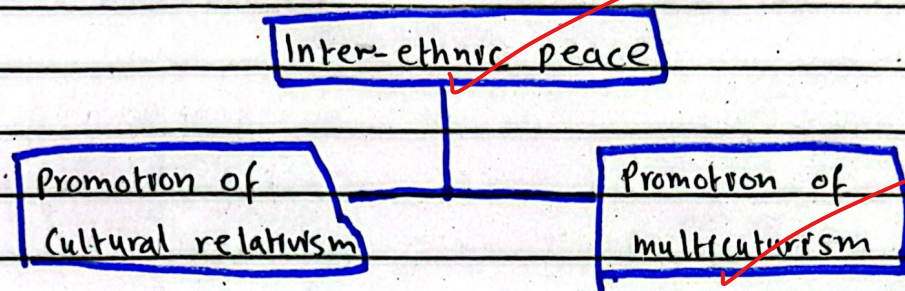 Inter-ethnic peace
Promotion of
Cultural relativism
Promotion of
multicuturism